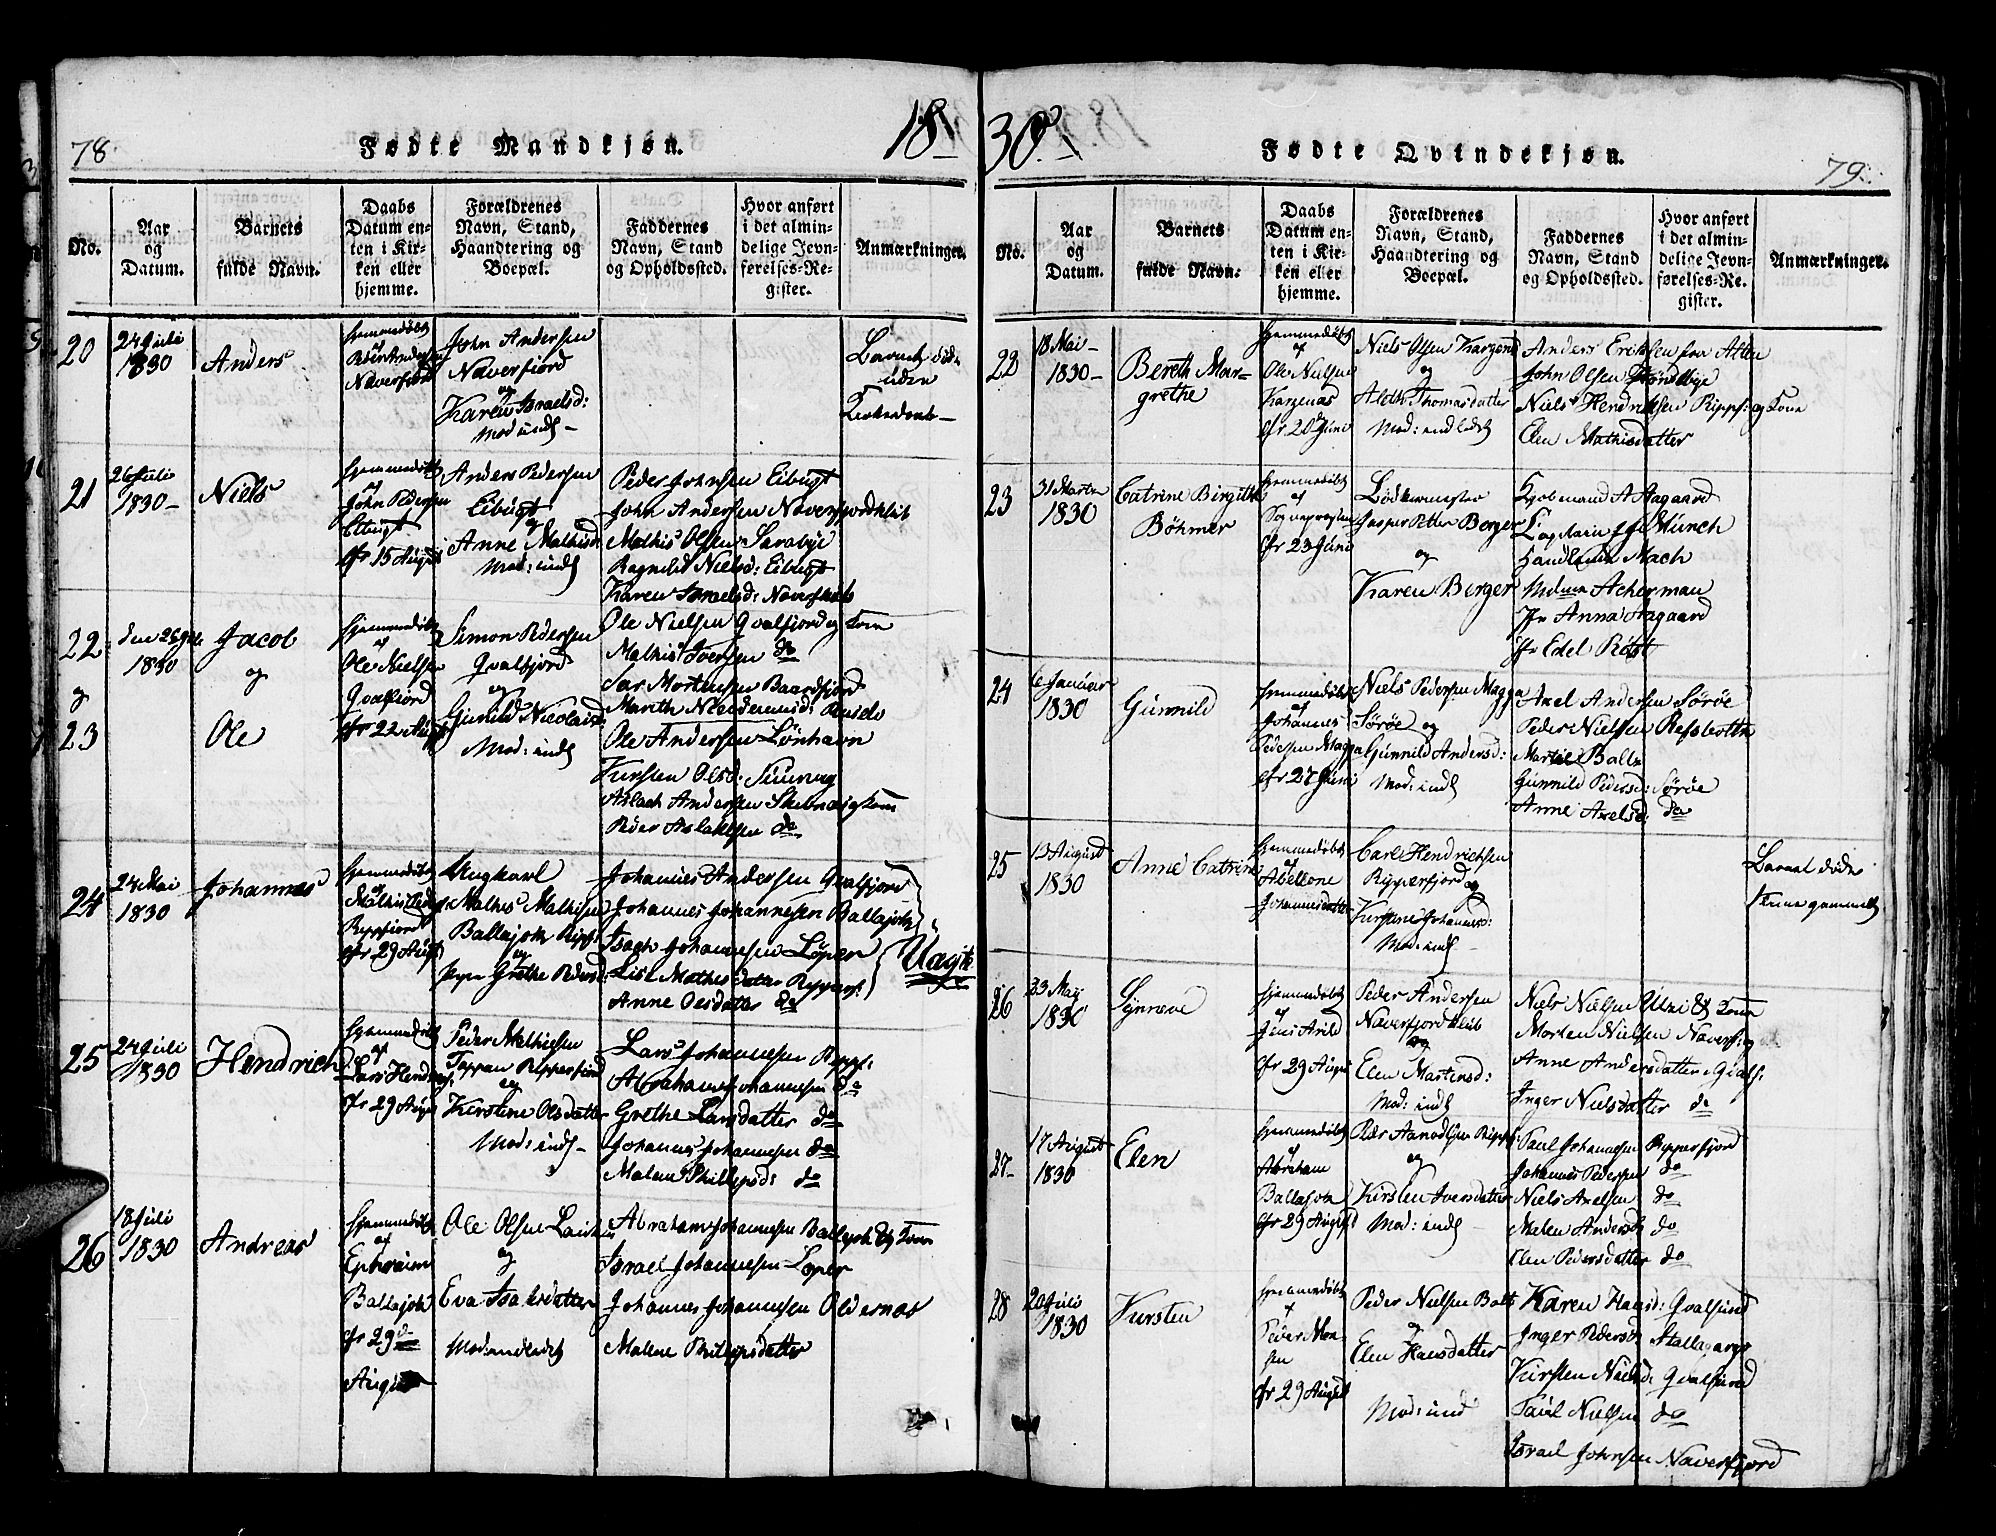 78.
Fødte Mandkjøn.
18
No.
Aar
og
Datum.
Barnets
fulde Navn.
Daabs
Datum en-
ten i Kir-
ken eller
hjemme.
Forældrenes
Navn, Stand,
Haandtering og
Boepæl.
Faddernes
Navn, Stand
og Opholdssted.
Hvor anført
i det almin-
delige Jevn-
førelses-Re-
gister.
Anmærkninger.
20
24 Juli
1830
Anders
Hjemmedøbt
af
Peder Andersen
Naverfiord
John Andersen
Naverfiord
og
Karen Israelsd:
Mod: indl
Barnet døde
uden
21
26 Juli
1830
Niels
Hjemmedøbt
af
John Pedersen
Eibugt
Cfr 15 August
Anders Pedersen
Eibugt
og
Anne Mathisd
Mod: indl
Peder Johnsen Eibugt
John Andersen Naverfjordklub
Mathis Olsen Sarabye
Ragnild Nielsd: Eibugt
Karen Israelsd: Naverfklub
22
og
23
den 26 Juli
1830
Jacob
og
Ole
Hjemmedøbt
af
Ole Nielsen
Qvalfiord
Cfr 22 Aug
Simon Pedersen
Qvalfjord
og
Gunild Nicolaisd
Mod: indl
Ole Nielsen Qvalfjord og Kone
Mathis Iversen do
Mortensen Baardfjord
Marith
Ole Andersen Lønhavn
Kirsten Olsd:
Aslach Andersen og Kone
Peder Aslaksen do
24
24 Mai
1830
Johannes
Hjemmedøbt
af
Mathis
Rypfiord
Cfr 29 Aug
Ungkarl
Mathis Mathisen
Ballajok Ripf:
og
Pige Grethe Pedersd
Johannes Andersen Qvalfjord
Johannes Johannesen Ballajok
Isach Johannesen Løper
Lisa Mathisdatter Ripperf:
Anne Olsdatter do
Uægte
25
24 Juli
1830
Hendrich
Hjemmedøbt
af
Lars Hendr
Cfr 29 Aug
Peder Mathisen
Tappan Ripperfiord
og
Kirstine Olsdatter
Mod: indl
Lars Johannesen Ripf:
Abraham Johannesen do
Grethe Larsdatter do
Johannes Johannesen do
Malene Phillipsd: do
26
18 Juli
1830
Andreas
Hjemmedøbt
af
Ephraim
Ballajok
Cfr 29de
August
Ole Olsen
og
Eva Isaksdatter
Mod: indledet
Abraham Johannesen Ballajok og Kone
Israel Johannesen Løper
Johannes Johannesen Oldernæs
Malene Philipsdatter
30.
Fødte Qvindekjøn.
79.
No.
Aar
og
Datum.
Barnets
fulde Navn.
Daabs
Datum en-
ten i Kir-
ken eller
hjemme.
Forældrenes
Navn, Stand,
Haandtering og
Boepæl.
Faddernes
Navn, Stand
og Opholdssted.
Hvor anført
i det almin-
delige Jevn-
førelses-Re-
gister.
Anmærkninger.
22
18 Mai
1830
Bereth Mar-
grethe
Hjemmedøbt
af
Ole Nielsen
Kargenæs
Cfr 20 Juni
Niels Olsen Kargenæs
og
Aleth Thomasdatter
Mod: indledet
Anders Eriksen fra Alten
John Olsen
Niels Hendriksen Rippf: og Kone
Elen Mathisdatter
23
31 Marts
1830
Catrine Birgitte
Bøhmer
Hjemmedøbt
af
Sognepræsten
Cfr 23 Juni
Bødkermester
Jasper Petter Berger
og
Karen Berger
Kjøbmand A Aagaard
Münch
Handlende Mach
Madame Acherman
Jfr Anna Aagaard
Jfr Edel Røst
24
6 Januar
1830
Gunnild
Hjemmedøbt
af
Johannes
Pedersen Magga
Cfr 27 Juni
Niels Pedersen Magga
Sørøe og
Gunnild Andersd:
Mod: indl
Axel Andersen Sørøe
Peder Nielsen Refsbotten
Balto
Gunnild Pedersd: Sørøe
Anne Axelsd: do
25
13 August
1830
Anne Catrine
Hjemmedøbt
af
Abellone
Johannesdatter
Carl Hendrichsen
Ripperfjord og
Kirstine Johannesd:
Mod: indl
Barnet døde
gammelt
26
23 Maij
1830
Synneve
Hjemmedøbt
af
Jens Arild
Cfr 29 Aug
Peder Andersen
Naverfjord klub
og
Elen Mortensd:
Mod: indl
Niels Nielsen og Kone
Morten Nielsen Naverf: og
Anne Andersdatter Qvalf:
Inger Nielsdatter do
27
17 August
1830
Elen
Hjemmedøbt
af
Abraham
Ballajok
Cfr 29 August
Peder Ripf:
og
Kirsten Iversdatter
Mod: indl
Paul Johannesen Ripperfjord
Johannes Pedersen do
Niels Axelsen do
Malen Andersd: do
Elen Pedersdatter do
28
20 Juli
1830
Kirsten
Hjemmedøbt
af
Peder Mon-
sen
Cfr 29 August
Peder Nielsen Balto
og
Elen Hansdatter
Mod: ind
Karen Hansd: Qvalsund
Inger Pedersd: Stallogargo
Kirsten Nielsd: Qvalsund
Paul Nielsen do
Israel Johnsen Naverfjord